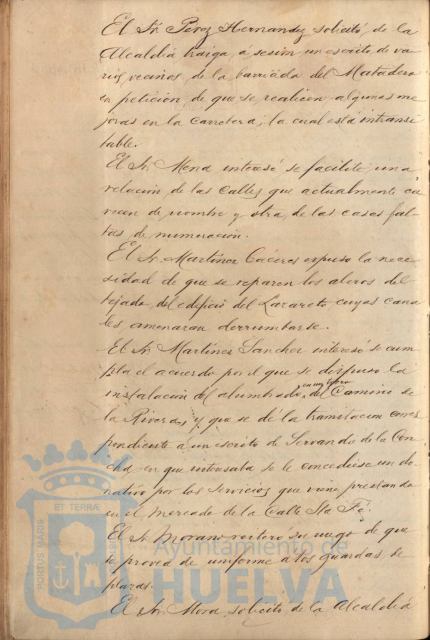 El Sr. Perez Hernandez solicitó, de la
Alcaldia traiga á sesión un escrito de va-
rios vecinos de la barriada del Matadero
en petición de que se realicen algunas me
joras en la Carretera, la cual está intransi
table.
El Sr. Mena interesó se facilite una
relación de las Calles que actualmente ca
recen de nombre y otra de las casas fal-
tas de numeración.
El Sr. Martinez Cáceres expuso la nece-
sidad de que se reparen los aleros del
tejado del edificio del Lazareto cuyas cana
les amenazan derrumbarse.
El Sr. Martinez Sanchez interesó se cum-
pla el acuerdo por el que se dispuso la
instalación del alumbrado del Camino de
la Rivera y que se dé la tramitacion corres
pondiente a un escrito de Servando de la Con
cha en que interesaba se le concediese un do
nativo por los servicios que viene prestando
en el Mercado de la Calle Sta Fé.
El Sr. Morano reitero su ruego de que
se provea de uniforme a los guardas de
plazas.
El Sr. Mora solicitó de la Alcaldia
PORTUS MARIS
ET TERRAE
Ayuntamiento de
HUELVA